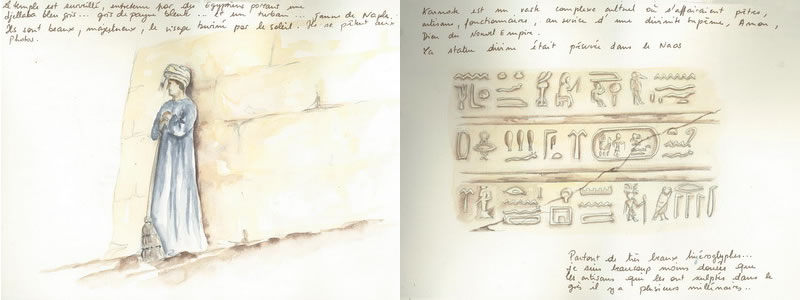 temple est surveillé, entretenu par des Egyptiens portant une
djellaba bleu gris... gris de payne bleuté... et un turban... jaune de Naples.
Ils sont beaux, majestueux, le visage buriné par le soleil. Ils se prêtent aux
photos.
Karnak est un vaste complexe cultuel où s'affairaient prêtres,
artisans, fonctionnaires, au service d'une divinité suprême, Amon,
Dieu du Nouvel Empire.
La statue divine était préservée dans le Naos
Partout de très beaux hiéroglyphes...
je suis beaucoup moins douée que
les artisans qui les ont sculptés dans le
grès il y a plusieurs millénaires..